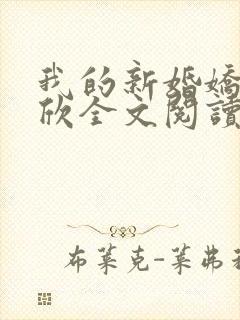 我的新婚嬌
欣全文閱讀
布萊克-萊弗利